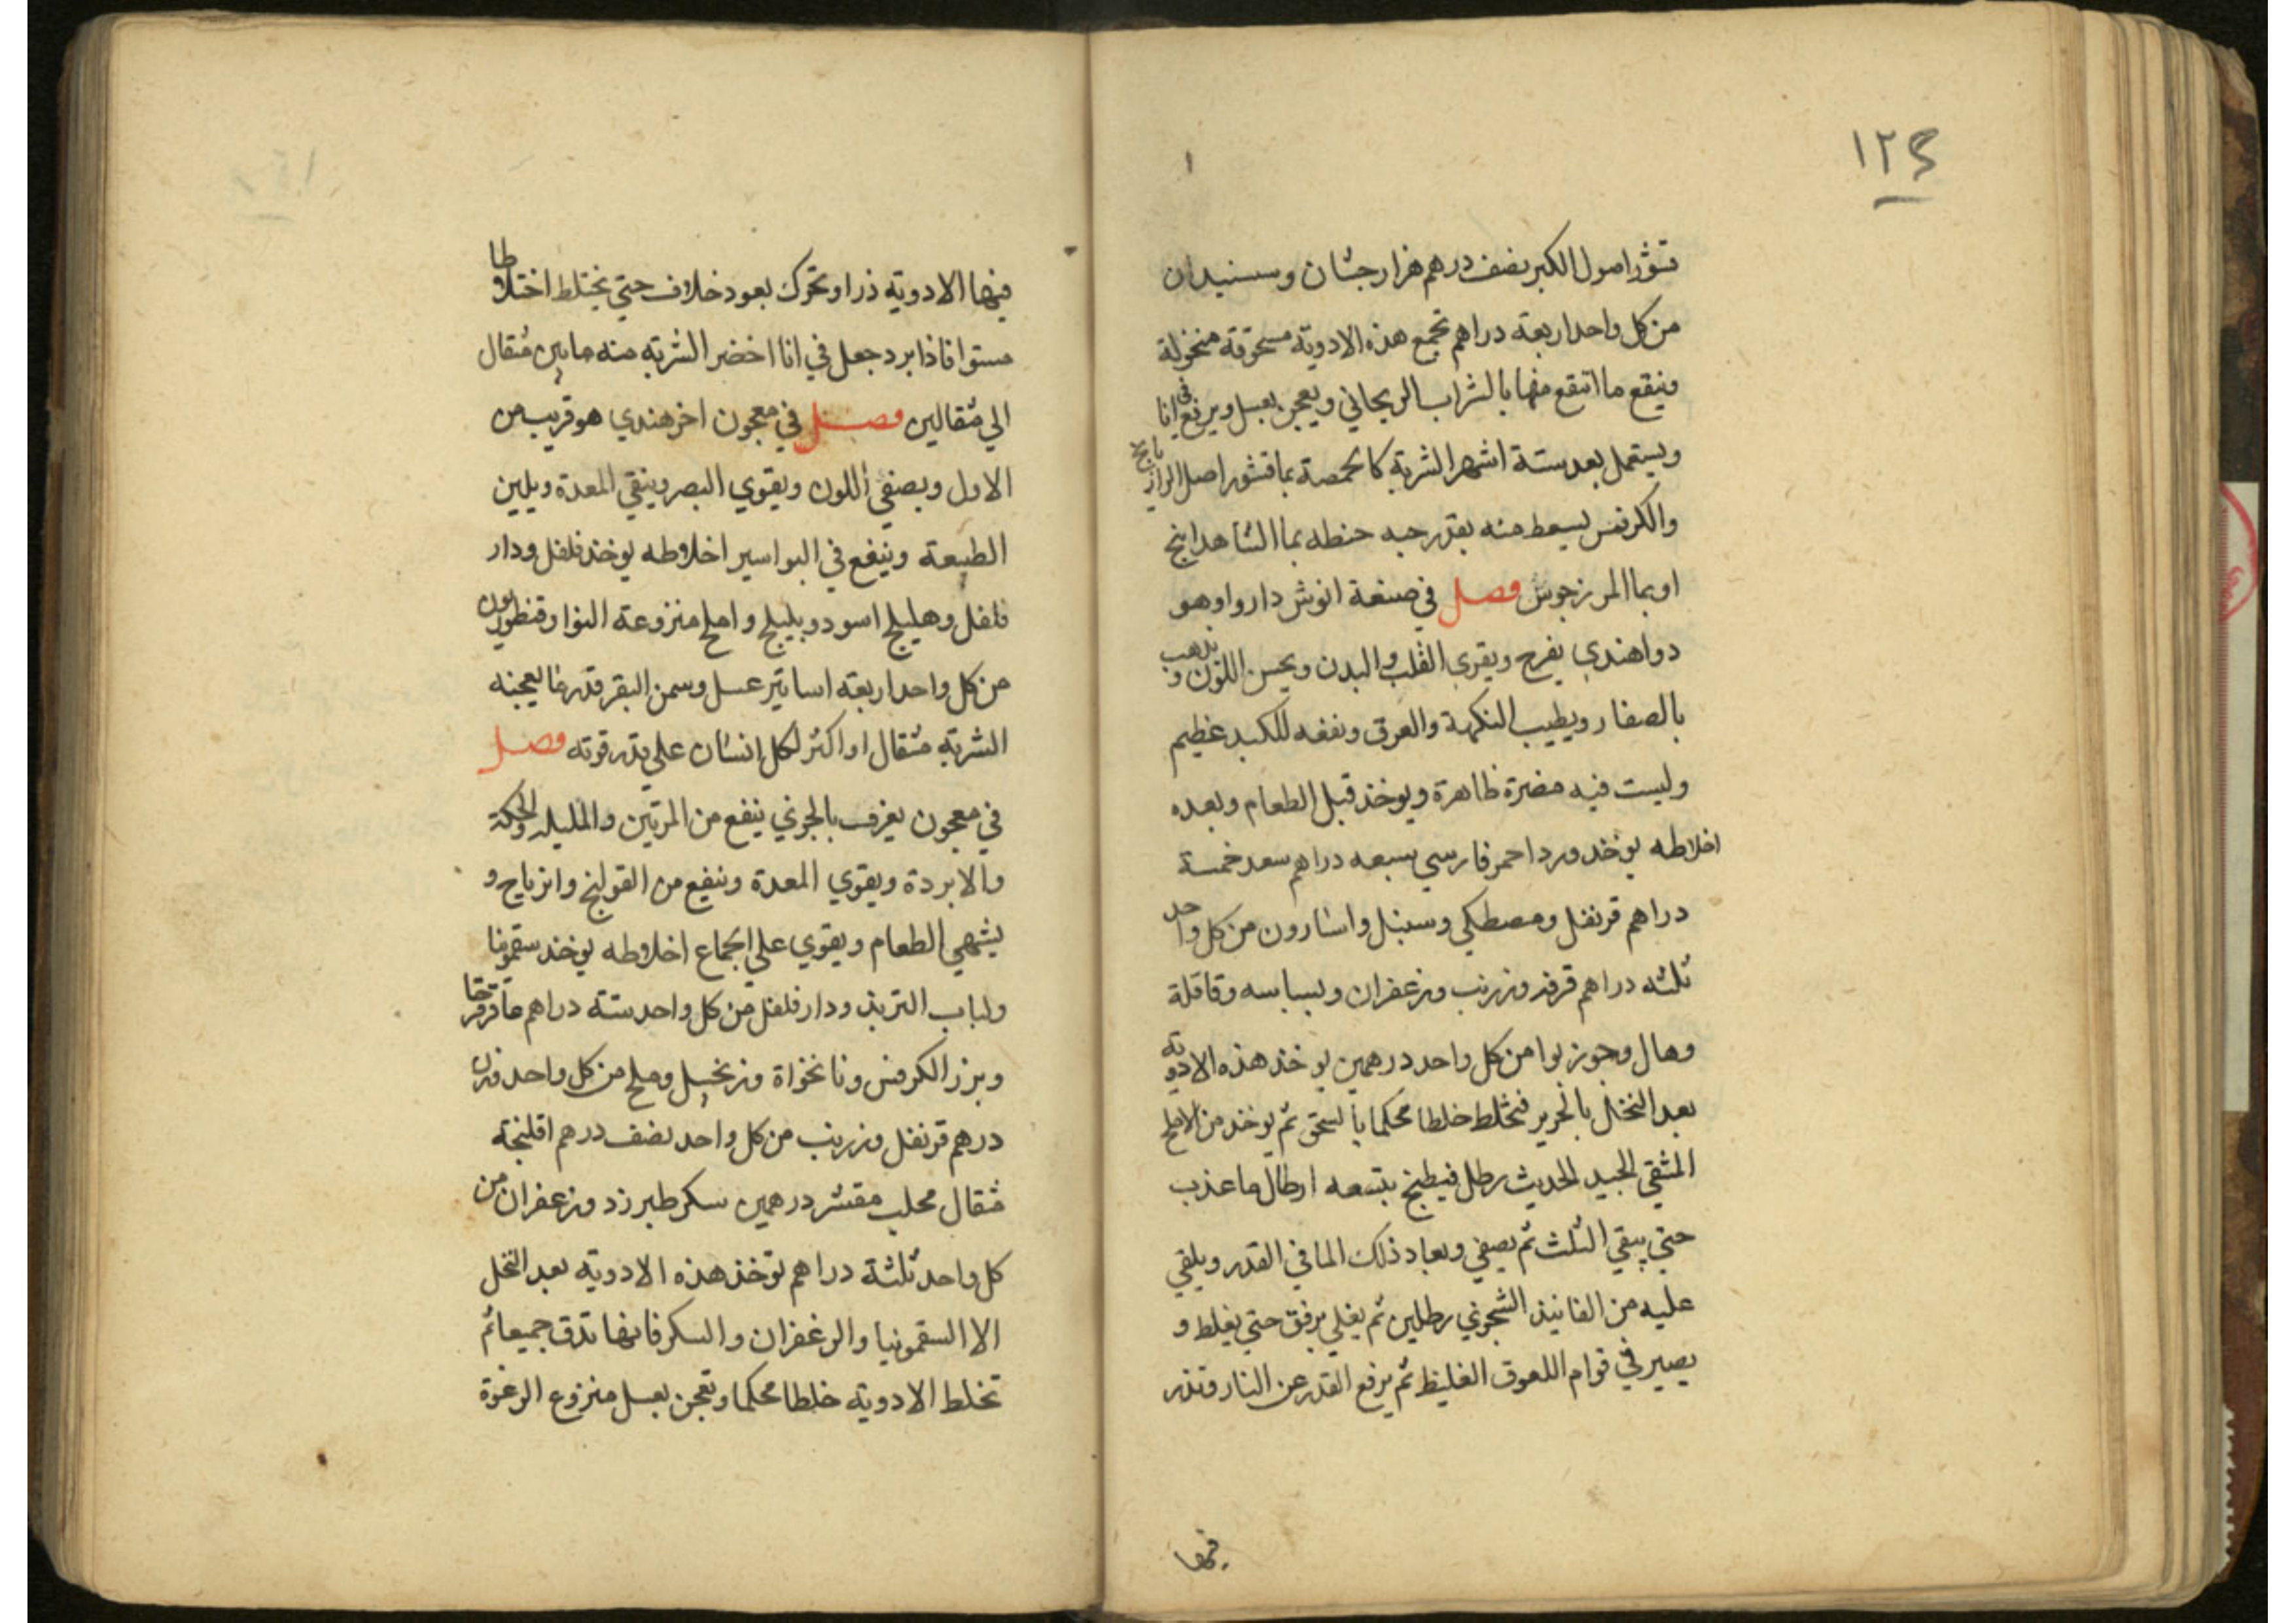 ١٢٤
قشور اصول الكبر نصف درهم هزار جشان وسسنيدان
من كل واحد اربعة دراهم تجمع هذه الادوية مسحوقة منخولة
وينقع ما انتقع منها بالشراب الريحاني ويعجن بعسل ويرفع في انا
ويستعمل بعد ستة اشهر الشربة كالحمصة بما قشور اصل الرازيانج
والكرفس يسعط منه بقدر حبه حنطه بما الشاهدانج
او بما المرزجوش فصل في صنعة انوش داروا وهو
دوا هندي يفرح ويقوي القلب والبدن ويحسن اللون ويذهب
بالصفار ويطيب النكهة والعرق ونفعه للكبد عظيم
وليست فيه مضرة ظاهرة ويوخذ قبل الطعام وبعده
اخلاطه يوخذ ورد احمر فارسي سبعه دراهم سعد خمسة
دراهم قرنفل ومصطكي وسنبل واسارون من كل واحد
ثلثه دراهم قرفه وزرنب وزعفران وبسباسه وقاقلة
وهال وجوز بوا من كل واحد درهمين يوخذ هذه الادويه
بعد النخل بالحرير فتخلط خلطا محكما بالسحق ثم يوخذ من الاملج
المنقي الجيد الحديث رطل فيطبخ بتسعه ارطال ما عذب
حتي يبقي الثلث ثم يصفي ويعاد ذلك الما في القدر ويلقي
عليه من الفانيذ الشجري رطلين ثم يغلي برفق حتي يغلظ و
يصير في قوام اللعوق الغليظ ثم يرفع القدر عن النار وتذر
فيها
فيها الادوية ذرا وتحرك بعود خلاف حتي يختلط اختلاطا
مستوا فاذا برد جعل في انا اخضر الشربه منه ما بين مثقال
الي مثقالين فصل في معجون اخر هندي هو قريب من
الاول ويصفي اللون ويقوي البصر وينقي المعدة ويلين
الطبيعة وينفع في البواسير اخلاطه يوخذ فلفل ودار
فلفل وهليلج اسود وبليلج واملج منزوعة النوا وقنطريون
من كل واحد اربعة اساتير عسل وسمن البقر قدر ما يعجنه
الشربة مثقال او اكثر لكل انسان علي قدر قوته فصل
في معجون يعرف بالجوني ينفع من المرتين والمليله والحكة
والابردة ويقوي المعدة وينفع من القولنج والرياح و
يشهي الطعام ويقوي علي الجماع اخلاطه يوخذ سقمونيا
ولباب التربد ودار فلفل من كل واحد ستة دراهم عاقرقرحا
وبزر الكرفس ونانخواة وزنجبيل وملح من كل واحد وزن
درهم قرنفل وزرنب من كل واحد نصف درهم افلنجة
مثقال محلب مقشر درهمين سكر طبرزد وزعفران من
كل واحد ثلثة دراهم توخذ هذه الادوية بعد النخل
الا السقمونيا والزعفران والسكر فانها تدق جميعا ثم
تخلط الادوية خلطا محكما وتعجن بعسل منزوع الرغوة